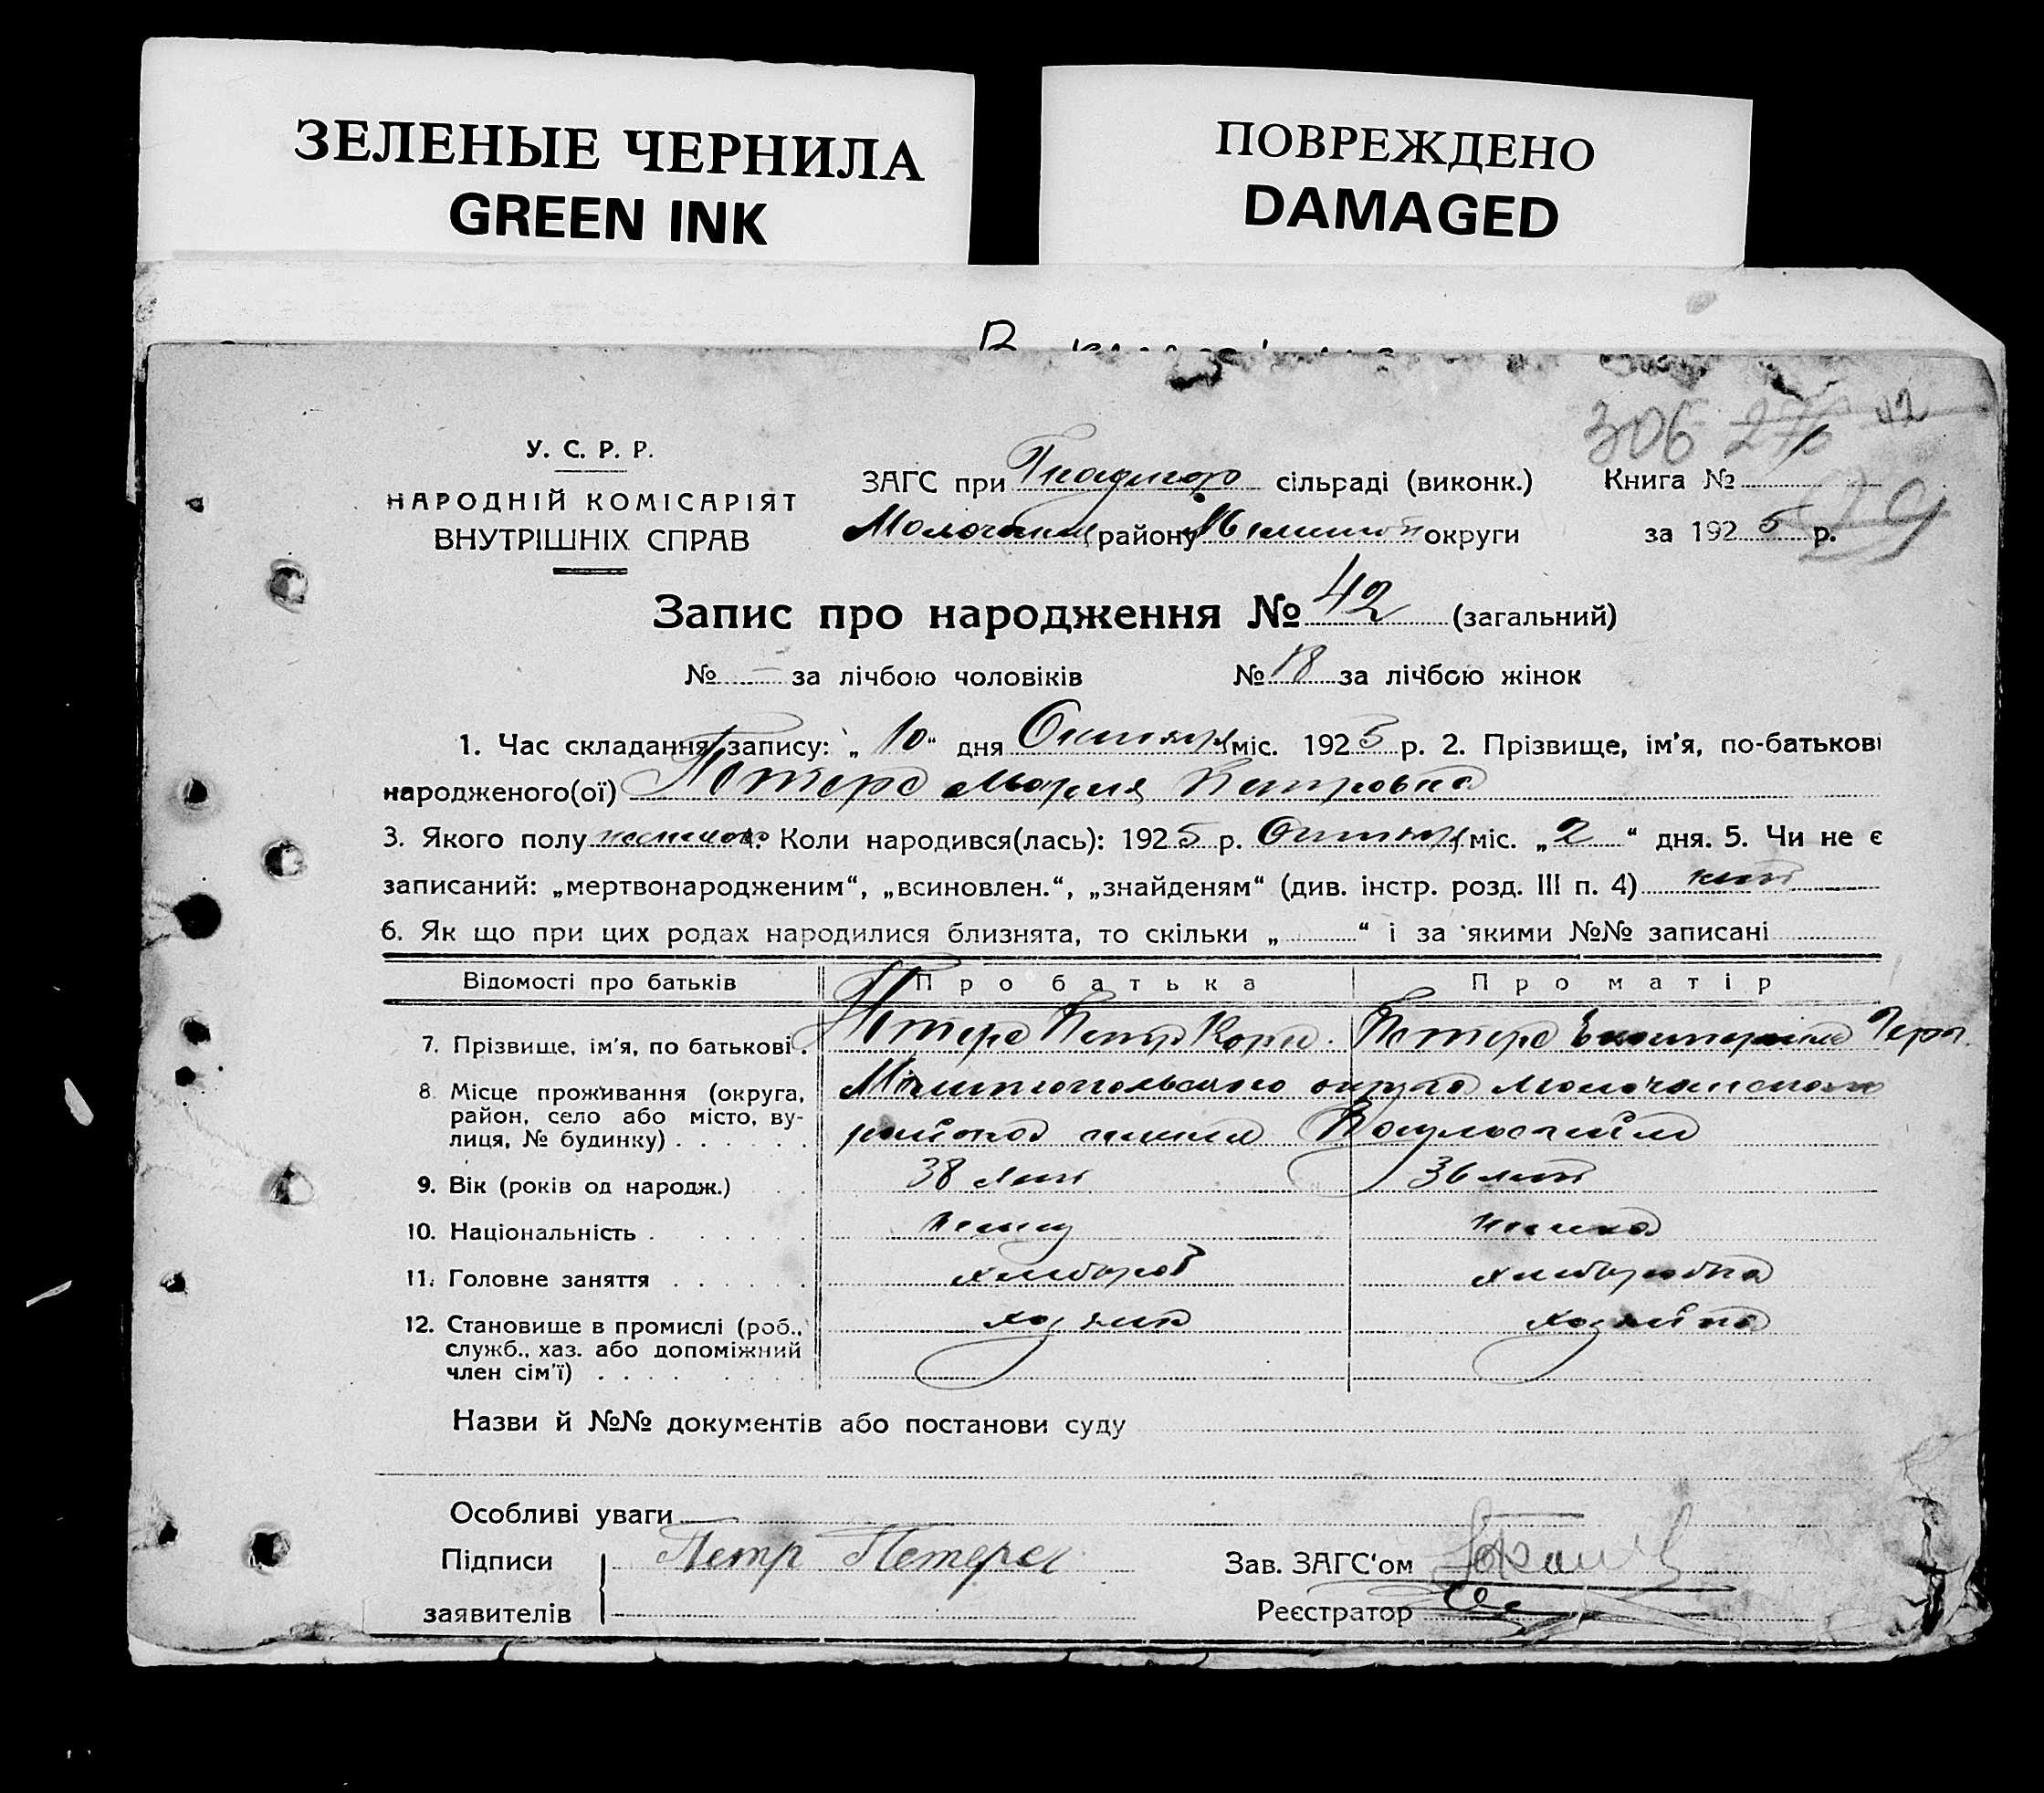 ЗЕЛЕНЫЕ ЧЕРНИЛА
GREEN INK
ПОВРЕЖДЕНО
DAMAGED
306
У. С. Р. Р.
НАРОДНІЙ КОМІСАРІЯТ
ВНУТРІШНІХ СПРАВ
ЗАГС при сільраді (виконк.)
Книга №
району округи
за 1925 р.
Запис про народження № 42 (загальний)
№ — за лічбою чоловіків № 18 за лічбою жінок
1. Час складання запису: „10“ дня Октября міс. 1925 р. 2. Прізвище, ім'я, по-батькові
народженого(ої) Петерс Мария Петровна
3. Якого полу 4. Коли народився(лась): 1925 р. Октября міс. „2“ дня. 5. Чи не є
записаний: „мертвонародженим“, „всиновлен.“, „знайденям“ (див. інстр. розд. III п. 4) нет
6. Як що при цих родах народилися близнята, то скільки „ “ і за якими №№ записані
Відомості про батьків Про батька Про матір
7. Прізвище, ім'я, по батькові. Петерс Петр Корн. Петерс Екатерина Герг.
8. Місце проживання (округа, Мелитопольского округа Молочанского
район, село або місто, ву-
лиця, № будинку) района
9. Вік (років од народж.) 38 лет 36 лет
10. Національність немец немка
11. Головне заняття хлебороб хлеборобка
12. Становище в промислі (роб., хозяин хозяйка
служб., хаз. або допоміжний
член сім'ї)
Назви й №№ документів або постанови суду
Особливі уваги
Підписи Петр Петерс
заявителів
Зав. ЗАГС'ом
Реєстратор